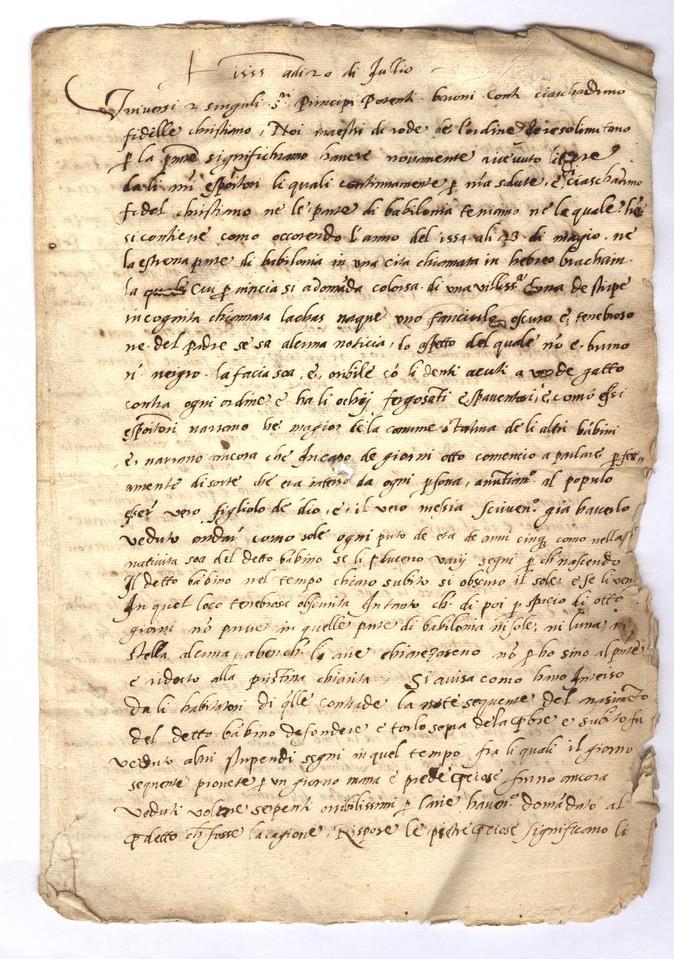 1555 adi 20 di Jullio
Universi & singuli s.ri Principi Potenti baroni Conti ciaschaduno
fidelle christiano, Noi maestri di rode de l'ordine ieresolimitano
p la pnte significhiamo havere novamente ricevuto litere
da li nri espoitori li quali continuamente p nra salute, e ciaschaduno
fidel christiano ne le parte di babilonia teniamo ne le quale
si contiene como occorendo l'anno del 1554 ali 23 di magio ne
la estrema parte di babilonia in una cita chiamata in hebreo brachain
la cui p.vincia si adomada colorsa di una viliss.a dona de stirpe
incognita chiamata laobas naque uno fanciule oscuro e tenebroso
ne del padre se sa alcuna noticia, lo aspetto del quale no e bruno
ni negro. la facia soa, e, oribile co li denti acuti a modo de gatto
contra ogni ordine e ha li ochij fogosati e spaventosi, e, como essi
espoitori narrano he magior de la comune statura de li altri babini
, e, narrano ancora che in capo de giorni otto comencio a parlare pfet-
amente di sorte che era inteso da ogni psona, anutian.o al populo
esser vero figliolo de dio, e, il vero mesia
veduto como sole ogni puto de eta de anni cinq. como nella
nativita soa del detto babino se li varij segni p ch nascendo
Il detto babino nel tempo chiaro subito si obscuro il sole, e se li
In quel loco tenebrosa obscurita Intanto ch. di poi p spacio di otto
giorni no parve in quelle parte di babilonia ni sole, ni luna, ni
stella alcuna, abench. no p ho sino al
e ridotto alla pristina chiarita, Si avisa como hano Inteso
da li habitatori di qlle contrade la note sequente del
del detto babino e subito fu
veduto altri stupendi segni in quel tempo fra li quali il giorno
sequente piovete p un giorno mana e prede p.ciose furno ancora
veduti volare serpenti oribilissimi p l'aire haven.o domadato al
p.detto ch fosse la cagione, Rispose le pietre p.ciose significano li